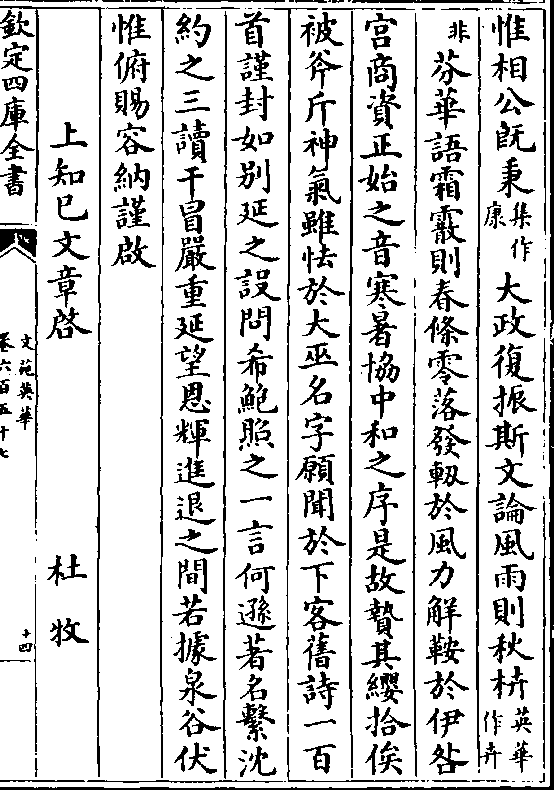 惟相公旣秉集作康大政復振斯文論風雨則秋枿英華作卉
非芬華語霜霰則春條零落發軔於風力解鞍於伊咎
宫商資正始之音寒暑協中和之序是故贄其纓拾俟
被斧斤神氣雖怯於大巫名字願聞於下客舊詩一百
首謹封如別延之設問希鮑照之一言何遜著名繫沈
約之三讀干冒嚴重延望恩輝進退之間若據泉谷伏
惟俯賜容納謹啟
上知已文章啓 杜牧
欽定四庫全書
文苑英華
卷六百五十七
十四